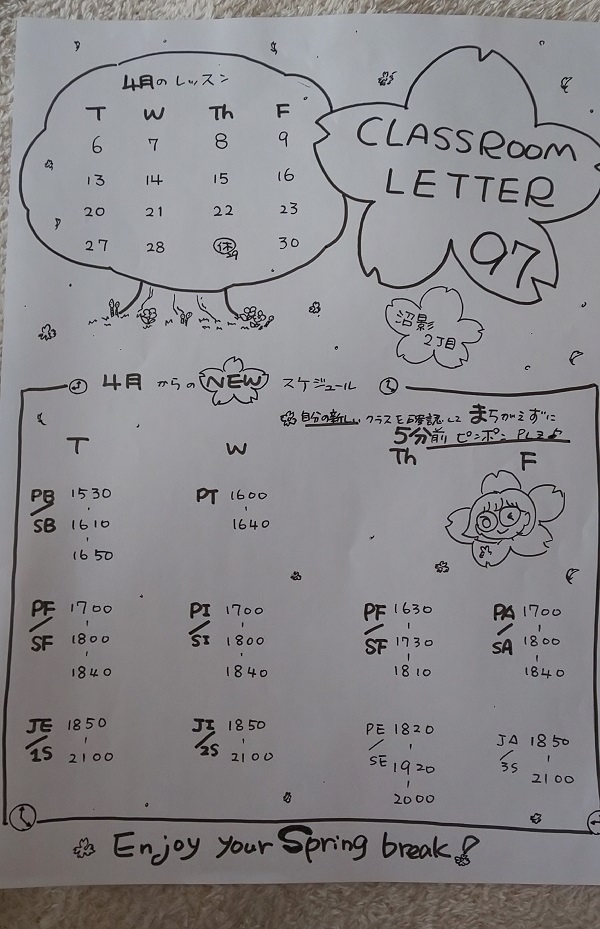 4月のレッスン
T W Th F
6 7 8 9
13 14 15 16
20 21 22 23
27 28 休29 30
CLASSROOM
LETTER
97
沼影
2丁目
4月 からの NEW スケジュール
自分の新しい クラスを確認して まちがえずに
5分前 ピンポン PLZ♪
T
PB 1530
/ -
SB 1610
-
1650
PF 1700
/ -
SF 1800
-
1840
JE 1850
/ -
1S 2100
W
PT 1600
-
1640
PI 1700
/ -
SI 1800
-
1840
JI 1850
/ -
2S 2100
Th
PF 1630
/ -
SF 1730
-
1810
PE 1820
/ -
SE 1920
-
2000
F
PA 1700
/ -
SA 1800
-
1840
JA 1850
/ -
3S 2100
Enjoy your Spring break!